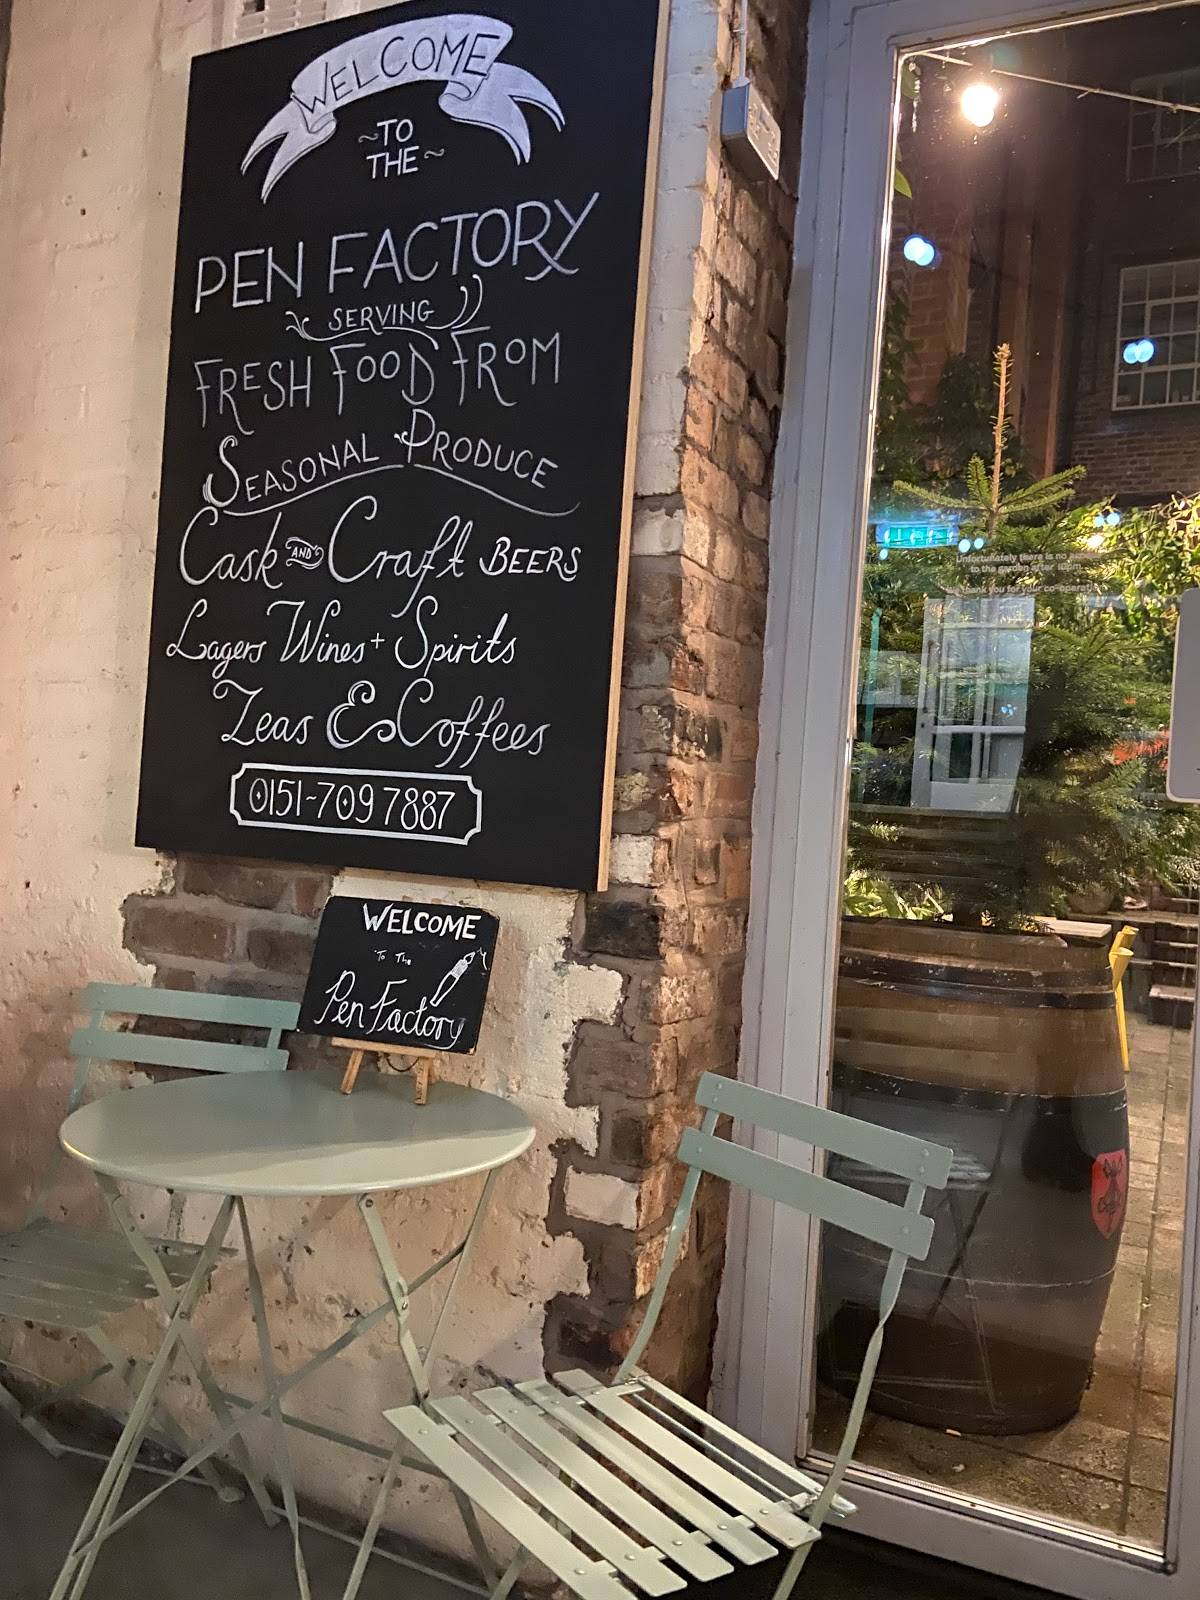 WELCOME
~TO
THE~
PEN FACTORY
SERVING
FRESH FOOD FROM
SEASONAL PRODUCE
Cask AND Craft BEERS
Lagers Wines + Spirits
Teas & Coffees
0151-709 7887
WELCOME
To The
Pen Factory
Unfortunately there is no
to the garden after 10pm.
thank you for your co-operation